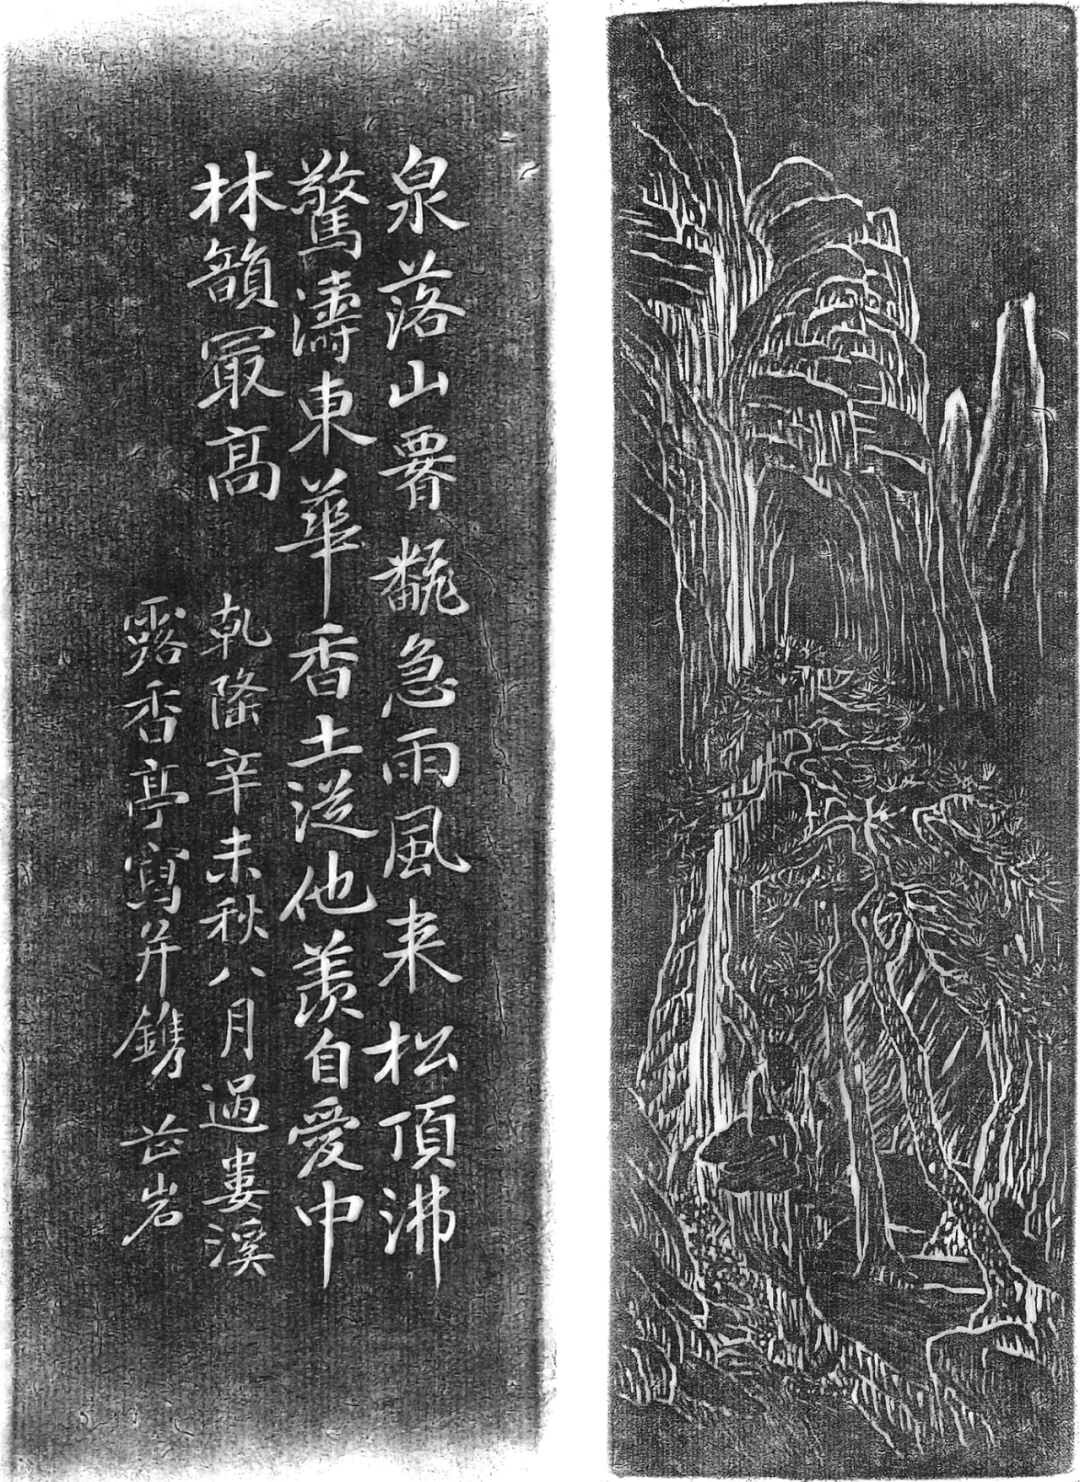 泉落山罾飜急雨風来松頂沸
驚濤東華香土從他羨自愛中
林韻冣高
乾隆辛未秋八月過婁溪
露香亭寫并鐫 芷岩